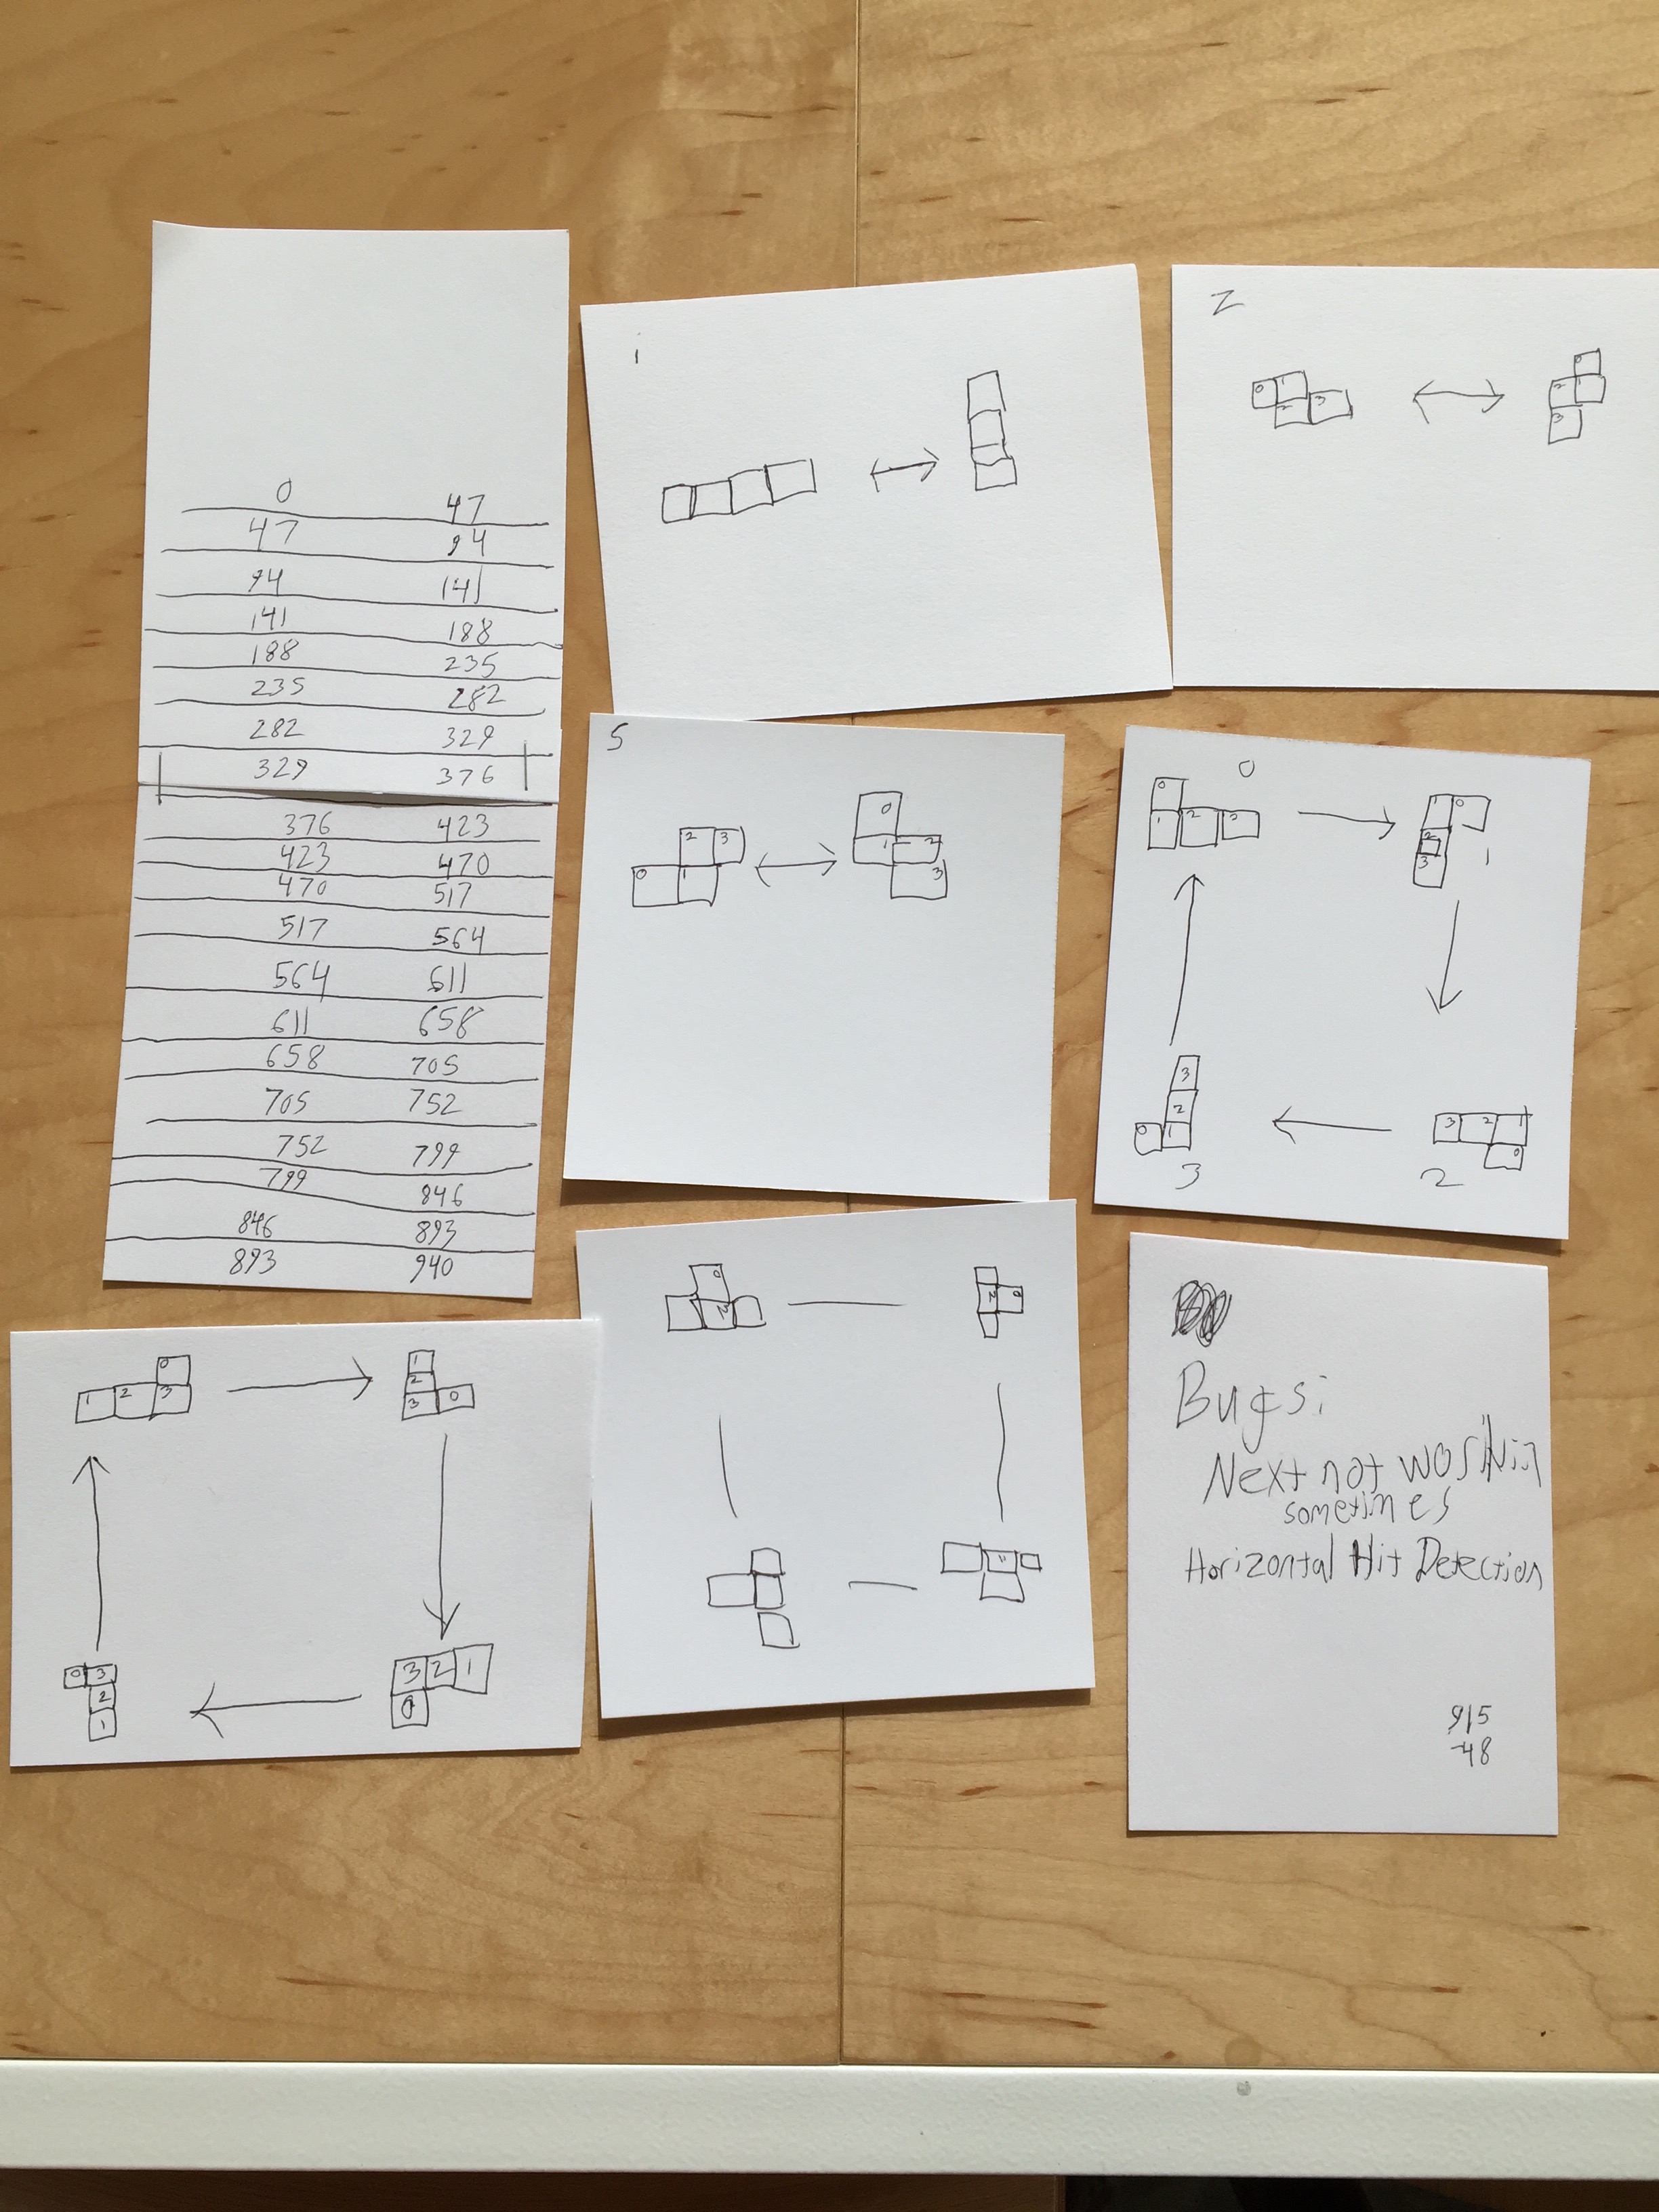 0 47
47 94
94 141
141 188
188 235
235 282
282 329
329 376
376 423
423 470
470 517
517 564
564 611
611 658
658 705
705 752
752 799
799 846
846 893
893 940
1
Z
0 1
2 3
0
2 1
3
S
2 3
0 1
0
1 2
3
0
0
1 2 3
1 0
2
3
1
3 2 1
0
2
3
2
0 1
3
0
1 2 3
1
2
3 0
3 2 1
0
0 3
2
1
0
2
2 0
Bugs:
Next not workin
sometimes
Horizontal Hit Detection
915
-48